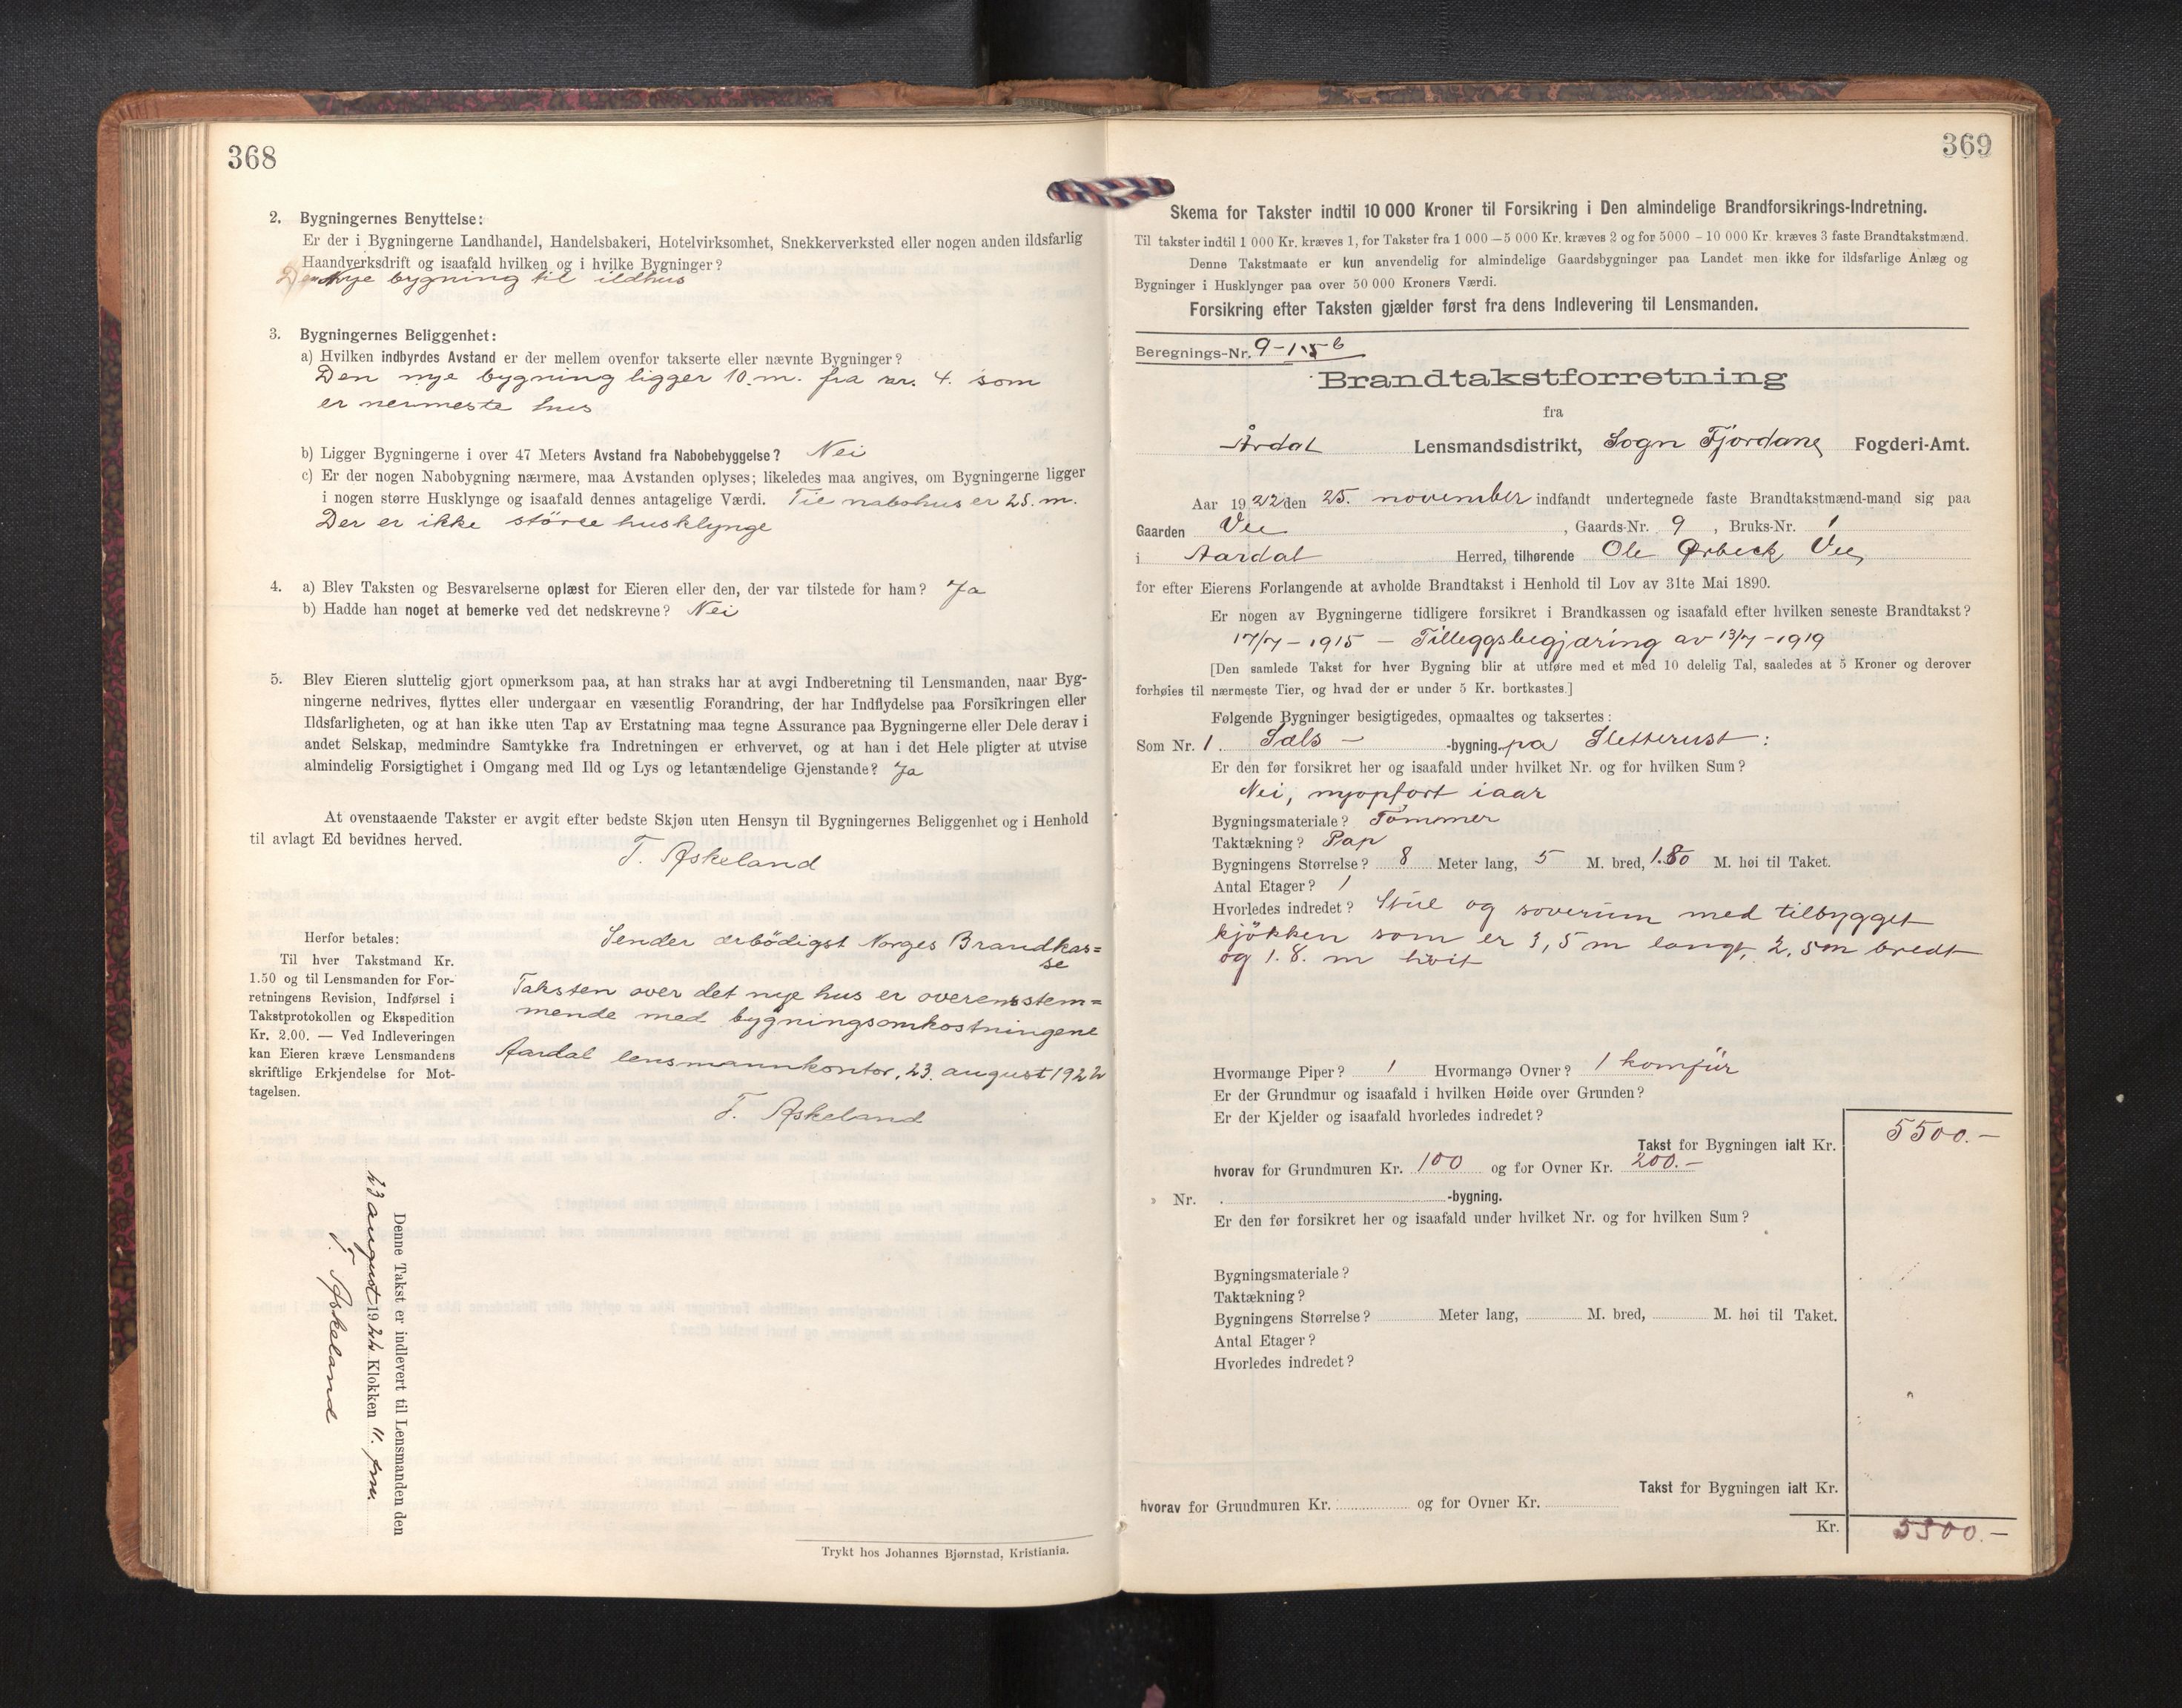 368
2. Bygningernes Benyttelse:
Er der i Bygningerne Landhandel, Handelsbakeri, Hotelvirksomhet, Snekkerverksted eller nogen anden ildsfarlig
Haandverksdrift og isaafald hvilken og i hvilke Bygninger?
Den nye bygning til ildhus
3. Bygningernes Beliggenhet:
a) Hvilken indbyrdes Avstand er der mellem ovenfor takserte eller nævnte Bygninger?
Den nye bygning ligger 10. m. fra nr. 4. som
er nermeste hus
b) Ligger Bygningerne i over 47 Meters Avstand fra Nabobebyggelse? Nei
c) Er der nogen Nabobygning nærmere, maa Avstanden oplyses; likeledes maa angives, om Bygningerne ligger
i nogen større Husklynge og isaafald dennes antagelige Værdi. Til nabohus er 25. m.
Der er ikke större husklynge
4. a) Blev Taksten og Besvarelserne oplæst for Eieren eller den, der var tilstede for ham? Ja
b) Hadde han noget at bemerke ved det nedskrevne? Nei
5. Blev Eieren sluttelig gjort opmerksom paa, at han straks har at avgi Indberetning til Lensmanden, naar Byg-
ningerne nedrives, flyttes eller undergaar en væsentlig Forandring, der har Indflydelse paa Forsikringen eller
Ildsfarligheten, og at han ikke uten Tap av Erstatning maa tegne Assurance paa Bygningerne eller Dele derav i
andet Selskap, medmindre Samtykke fra Indretningen er erhvervet, og at han i det Hele pligter at utvise
almindelig Forsigtighet i Omgang med Ild og Lys og letantændelige Gjenstande? Ja
At ovenstaaende Takster er avgit efter bedste Skjøn uten Hensyn til Bygningernes Beliggenhet og i Henhold
til avlagt Ed bevidnes herved.
T. Askeland
Herfor betales:
Til hver Takstmand Kr.
1.50 og til Lensmanden for For-
retningens Revision, Indførsel i
Takstprotokollen og Ekspedition
Kr. 2.00. — Ved Indleveringen
kan Eieren kræve Lensmandens
skriftlige Erkjendelse for Mot-
tagelsen.
Sender ærbödigst Norges Brandkas=
se
Taksten over det nye hus er overensstem=
mende med bygningsomkostningene
Aardal lensmannkontor, 23. august 1922
T. Askeland
Denne Takst er indlevert til Lensmanden den
23 august 1922 Klokken 11. fm.
T. Askeland
Trykt hos Johannes Bjørnstad, Kristiania.
369
Skema for Takster indtil 10 000 Kroner til Forsikring i Den almindelige Brandforsikrings-Indretning.
Til takster indtil 1 000 Kr. kræves 1, for Takster fra 1 000 — 5 000 Kr. kræves 2 og for 5000 – 10 000 Kr. kræves 3 faste Brandtakstmænd.
Denne Takstmaate er kun anvendelig for almindelige Gaardsbygninger paa Landet men ikke for ildsfarlige Anlæg og
Bygninger i Husklynger paa over 50 000 Kroners Værdi.
Forsikring efter Taksten gjælder først fra dens Indlevering til Lensmanden.
Beregnings-Nr. 9-1.5 b
Brandtakstforretning
fra
Årdal Lensmandsdistrikt, Sogn Fjordane Fogderi-Amt.
Aar 1922 den 25. november indfandt undertegnede faste Brandtakstmænd-mand sig paa
Gaarden Vee, Gaards-Nr. 9, Bruks-Nr. 1
i Aardal Herred, tilhørende Ole Ørbeck Vee,
for efter Eierens Forlangende at avholde Brandtakst i Henhold til Lov av 31te Mai 1890.
Er nogen av Bygningerne tidligere forsikret i Brandkassen og isaafald efter hvilken seneste Brandtakst?
17/7 – 1915 – Tilleggsbegjæring av 13/7 – 1919
[Den samlede Takst for hver Bygning blir at utføre med et med 10 delelig Tal, saaledes at 5 Kroner og derover
forhøies til nærmeste Tier, og hvad der er under 5 Kr. bortkastes.]
Følgende Bygninger besigtigedes, opmaaltes og taksertes:
Som Nr. 1. Sæls – -bygning. på Sletterust:
Er den før forsikret her og isaafald under hvilket Nr. og for hvilken Sum?
Nei, nyopfört iaar
Bygningsmateriale? Tömmer
Taktækning? Pap
Bygningens Størrelse? 8 Meter lang, 5 M. bred, 1.80 M. høi til Taket.
Antal Etager? 1
Hvorledes indredet? Stue og soverum med tilbygget
kjökken som er 3,5 m langt, 2,5m bredt
og 1.8. m höit
Hvormange Piper? 1 Hvormange Ovner? 1 komfür
Er der Grundmur og isaafald i hvilken Høide over Grunden?
Er der Kjelder og isaafald hvorledes indredet?
Takst for Bygningen ialt Kr. 5500.–
hvorav for Grundmuren Kr. 100 og for Ovner Kr. 200.–
» Nr. -bygning.
Er den før forsikret her og isaafald under hvilket Nr. og for hvilken Sum?
Bygningsmateriale?
Taktækning?
Bygningens Størrelse? Meter lang, M. bred, M. høi til Taket.
Antal Etager?
Hvorledes indredet?
Takst for Bygningen ialt Kr.
hvorav for Grundmuren Kr. og for Ovner Kr.
Kr. 5500.–